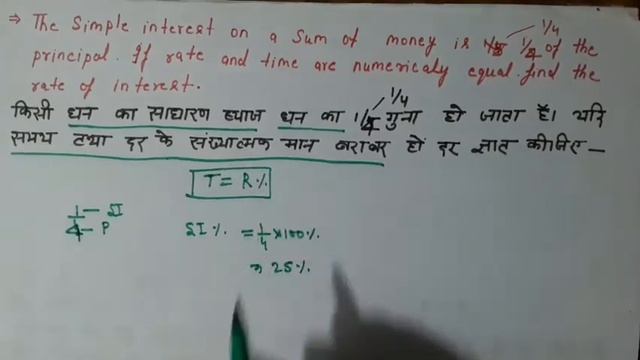 ⇒ The Simple interest on a sum of money is 1/4 of the
principal. If rate and time are numericaly equal find the
rate of interest.
किसी धन का साधारण ब्याज धन का 1/4 गुना हो जाता है। यदि
समय तथा दर के संख्यात्मक मान बराबर हों दर ज्ञात कीजिए -
T = R%
1/4 - SI
- P
SI% = 1/4 × 100%
= 25%